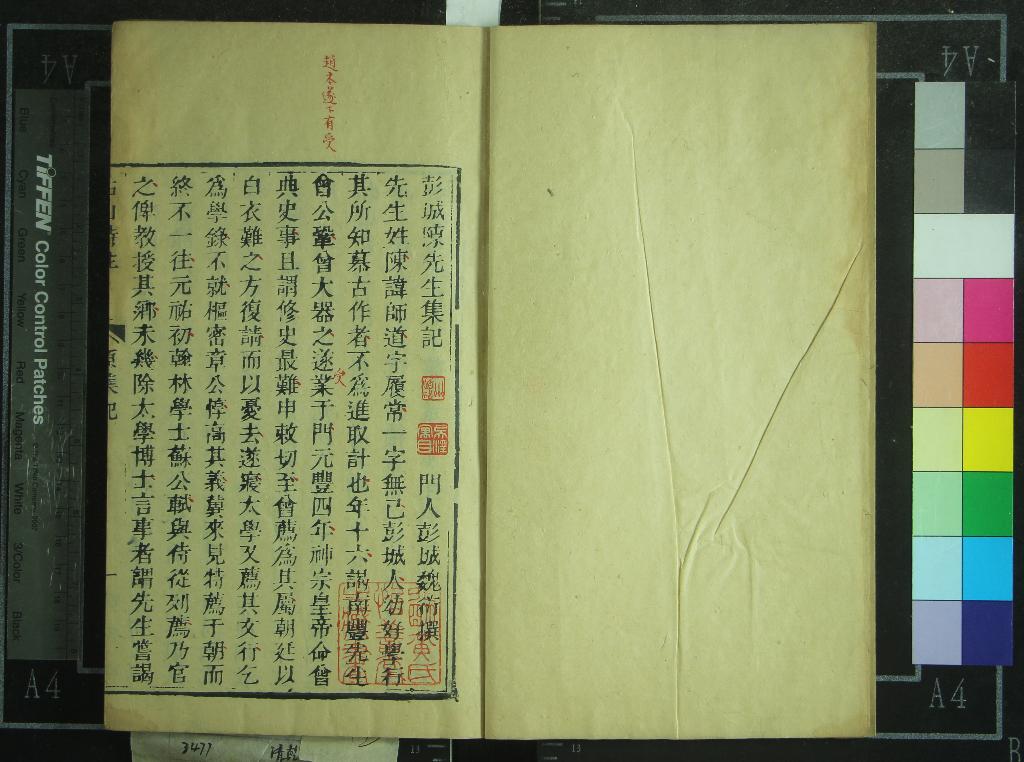 趙本遂下有受
彭城陳先生集記
門人彭城魏衍撰
先生姓陳諱師道字履常一字無己彭城人幼好學行
其所知慕古作者不為進取計也年十六謁南豐先生
曾公鞏曾大器之遂業于門元豐四年神宗皇帝命曾
受
典史事且謂修史最難申敕切至曾薦為其屬朝廷以
白衣難之方復請而以憂去遂寢太學又薦其文行乞
為學錄不就樞密章公惇高其義冀來見特薦于朝而
終不一往元祐初翰林學士蘇公軾與侍從列薦乃官
之俾教授其鄉未幾除太學博士言事者謂先生嘗謁
一
TIFFEN Color Control Patches
Blue
Cyan
Green
Yellow
Red
Magenta
White
3/Color
Black
A4
A4
A4
A4
3477
13
13
B